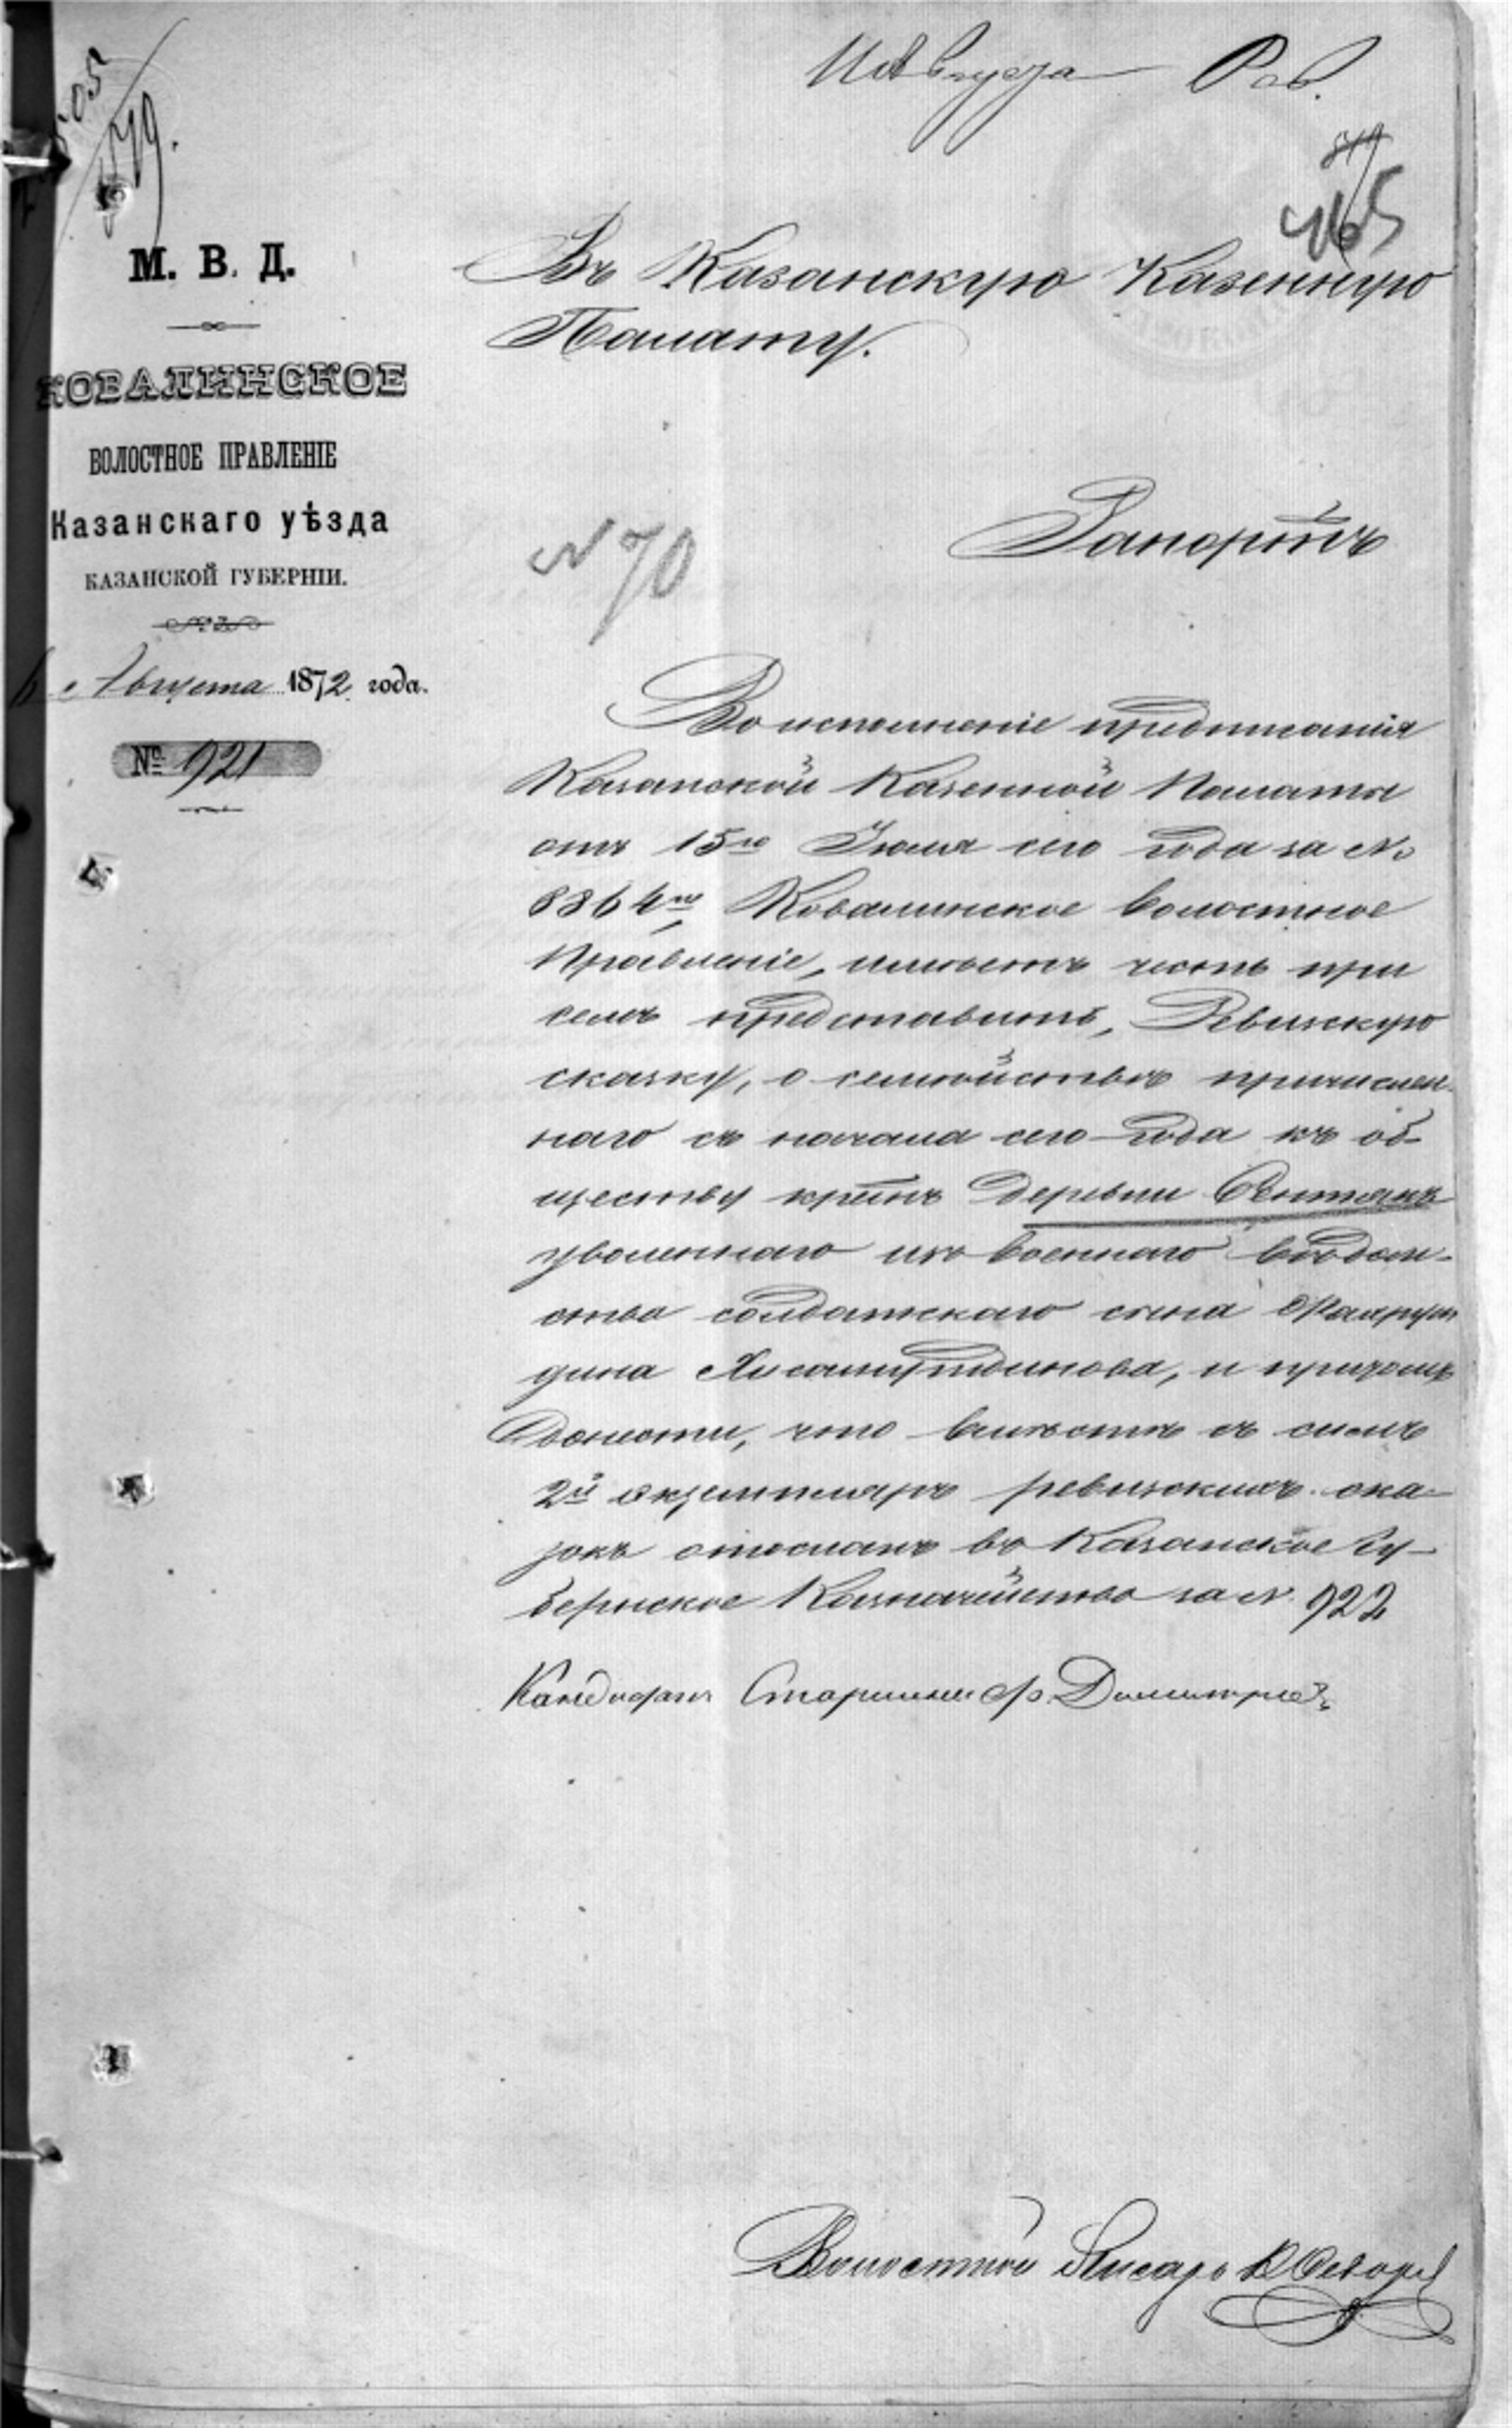 Августа
465
М. В. Д.
КОВАЛИНСКОЕ
ВОЛОСТНОЕ ПРАВЛЕНІЕ
Казанскаго уѣзда
КАЗАНСКОЙ ГУБЕРНІИ.
Августа 1872 года.
№ 921
Въ Казанскую Казенную
Палату.
N 70
Рапортъ
Во исполненіе предписанія
Казанской Казенной Палаты
отъ 15го Іюля сего года за №
8864мъ, Ковалинское волостное
Правленіе, имѣетъ честь при
семъ представить, Ревизскую
сказку, о семѣйствѣ причислен-
наго съ начала сего года къ об-
ществу крѣнъ деревни
уволеннаго изъ военнаго вѣдом-
ства солдатскаго сына
дина Хисамутдинова, и притомъ
донести, что вмѣстѣ съ симъ
2й экземпляръ ревизскихъ ска-
зокъ отосланъ въ Казанское Гу-
бернское Казначейство за № 922
Кандидатъ Старшины Димитріевъ
Волостной Писарь